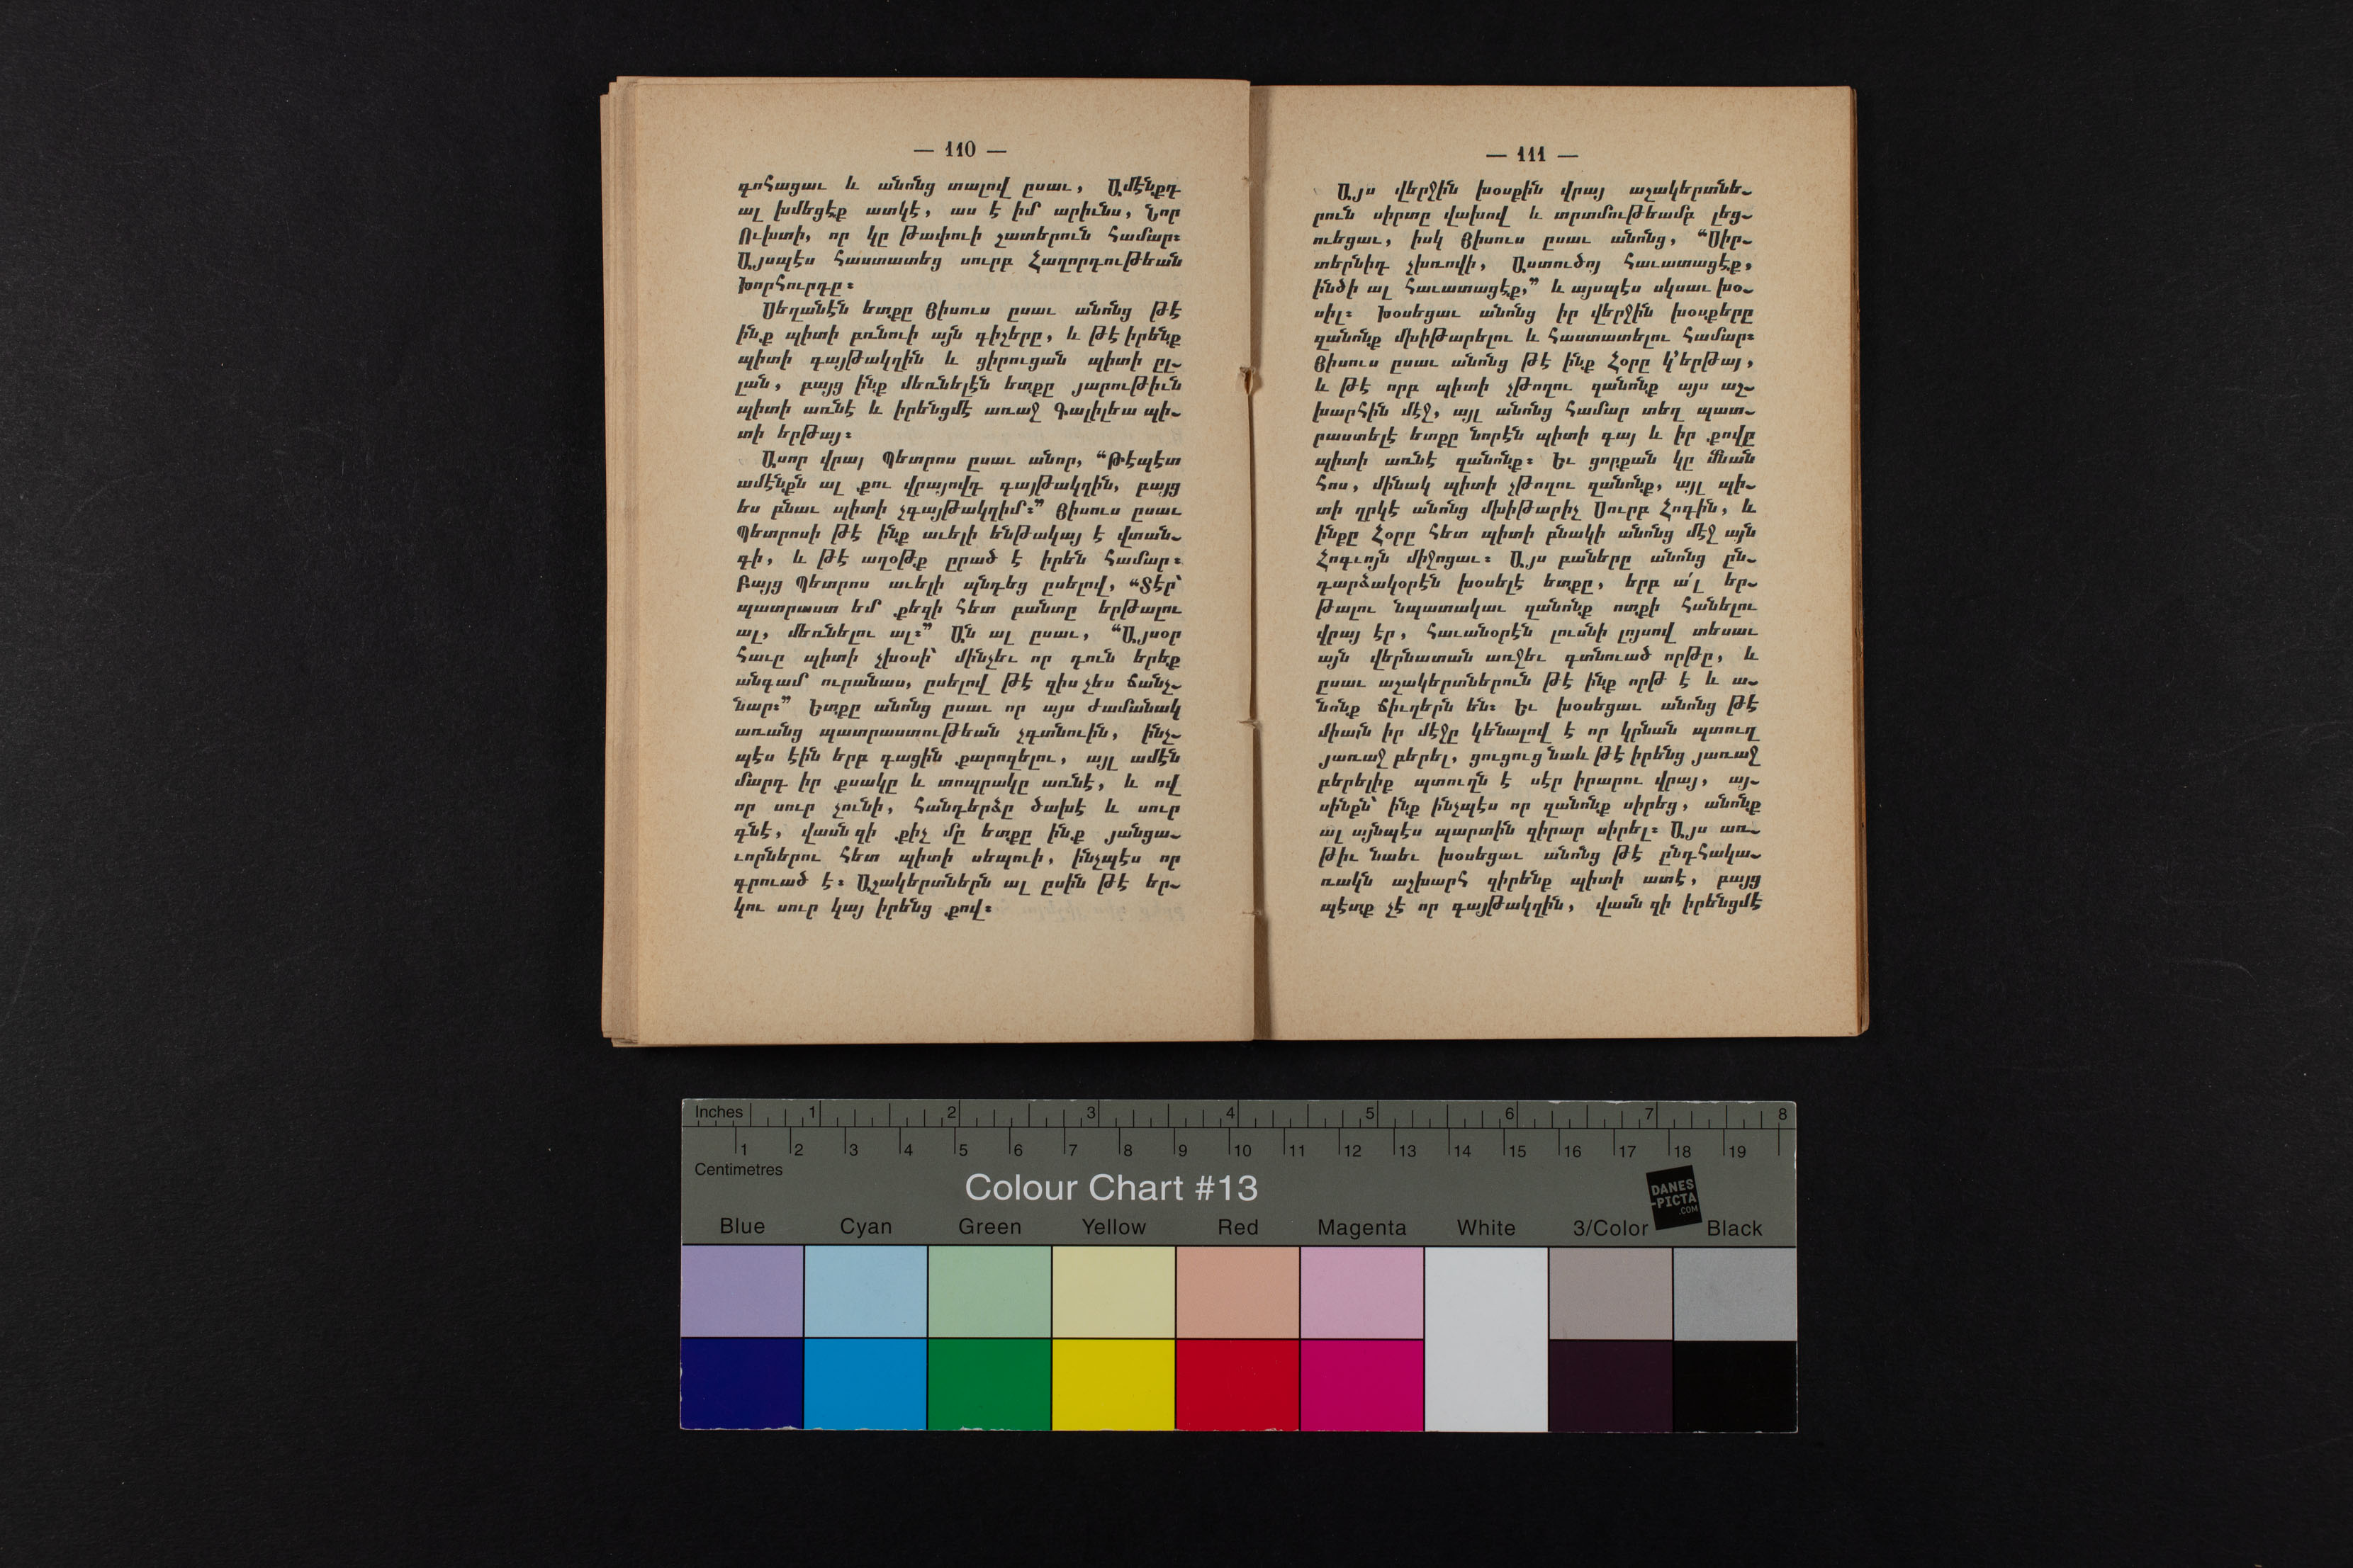 — 110 —
գոհացաւ և անոնց տալով ըսաւ, Ամէնքդ
ալ խմեցէք ատկէ, աս է իմ արիւնս, Նոր
Ուխտի, որ կը թափուի շատերուն համար։
Այսպէս հաստատեց սուրբ Հաղորդութեան
խորհուրդը։
Սեղանէն ետքը Յիսուս ըսաւ անոնց թէ
ինք պիտի բռնուի այն գիշերը, և թէ իրենք
պիտի գայթակղին և ցիրուցան պիտի ըլ֊
լան, բայց ինք մեռնելէն ետքը յարութիւն
պիտի առնէ և իրենցմէ առաջ Գալիլեա պի֊
տի երթայ։
Ասոր վրայ Պետրոս ըսաւ անոր, “Թէպէտ
ամէնքն ալ քու վրայովդ գայթակղին, բայց
ես բնաւ պիտի չգայթակղիմ։” Յիսուս ըսաւ
Պետրոսի թէ ինք աւելի ենթակայ է վտան֊
գի, և թէ աղօթք ըրած է իրեն համար։
Բայց Պետրոս աւելի պնդեց ըսելով, “Տէր՝
պատրաստ եմ քեզի հետ բանտը երթալու
ալ, մեռնելու ալ։” Ան ալ ըսաւ, “Այսօր
հաւը պիտի չխօսի՝ մինչեւ որ դուն երեք
անգամ ուրանաս, ըսելով թէ զիս չես ճանչ֊
նար։” Ետքը անոնց ըսաւ որ այս ժամանակ
առանց պատրաստութեան չգտնուին, ինչ֊
պէս էին երբ գացին քարոզելու, այլ ամէն
մարդ իր քսակը և տոպրակը առնէ, և ով
որ սուր չունի, հանդերձը ծախէ և սուր
գնէ, վասն զի քիչ մը ետքը ինք յանցա֊
ւորներու հետ պիտի սեպուի, ինչպէս որ
գրուած է։ Աշակերտներն ալ ըսին թէ եր֊
կու սուր կայ իրենց քով։
— 111 —
Այս վերջին խօսքին վրայ աշակերտնե֊
րուն սիրտը վախով և տրտմութեամբ լեց֊
ուեցաւ, իսկ Յիսուս ըսաւ անոնց, “Սիր֊
տերնիդ չխռովի, Աստուծոյ հաւատացէք,
ինծի ալ հաւատացէք,” և այսպէս սկսաւ խօ֊
սիլ։ Խօսեցաւ անոնց իր վերջին խօսքերը
զանոնք մխիթարելու և հաստատելու համար։
Յիսուս ըսաւ անոնց թէ ինք Հօրը կ՚երթայ,
և թէ որբ պիտի չթողու զանոնք այս աշ֊
խարհին մէջ, այլ անոնց համար տեղ պատ֊
րաստելէ ետքը նորէն պիտի գայ և իր քովը
պիտի առնէ զանոնք։ Եւ ցորքան կը մնան
հոս, մինակ պիտի չթողու զանոնք, այլ պի֊
տի ղրկէ անոնց մխիթարիչ Սուրբ Հոգին, և
ինքը Հօրը հետ պիտի բնակի անոնց մէջ այն
Հոգւոյն միջոցաւ։ Այս բաները անոնց ըն֊
դարձակօրէն խօսելէ ետքը, երբ ա՛լ եր֊
թալու նպատակաւ զանոնք ոտքի հանելու
վրայ էր, հաւանօրէն լուսնի լոյսով տեսաւ
այն վերնատան առջեւ գտնուած որթը, և
ըսաւ աշակերտներուն թէ ինք որթ է և ա֊
նոնք ճիւղերն են։ Եւ խօսեցաւ անոնց թէ
միայն իր մէջը կենալով է որ կրնան պտուղ
յառաջ բերել, ցուցուց նաև թէ իրենց յառաջ
բերելիք պտուղն է սէր իրարու վրայ, այ֊
սինքն՝ ինք ինչպէս որ զանոնք սիրեց, անոնք
ալ այնպէս պարտին զիրար սիրել։ Այս առ֊
թիւ նաեւ խօսեցաւ անոնց թէ ընդհակա֊
ռակն աշխարհ զիրենք պիտի ատէ, բայց
պէտք չէ որ գայթակղին, վասն զի իրենցմէ
Inches 1 2 3 4 5 6 7 8
1 2 3 4 5 6 7 8 9 10 11 12 13 14 15 16 17 18 19
Centimetres
Colour Chart #13
DANES
-PICTA
.COM
Blue Cyan Green Yellow Red Magenta White 3/Color Black